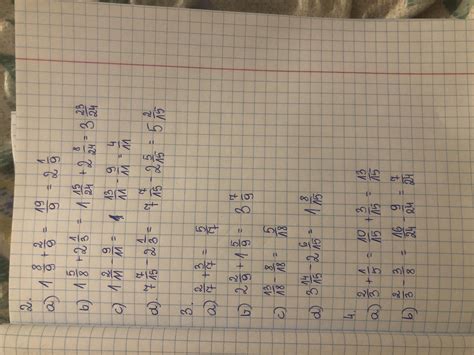 2.
a) 1 8/9 + 2/9 = 19/9 = 2 1/9
b) 1 5/8 + 2 1/3 = 1 15/24 + 2 8/24 = 3 23/24
c) 1 2/11 - 9/11 = 13/11 - 9/11 = 4/11
d) 7 7/15 - 2 1/3 = 7 7/15 - 2 5/15 = 5 2/15
3.
a) 2/7 + 3/7 = 5/7
b) 2 2/9 + 1 5/9 = 3 7/9
c) 13/18 - 8/18 = 5/18
d) 3 14/15 - 2 6/15 = 1 8/15
4.
a) 2/3 + 1/5 = 10/15 + 3/15 = 13/15
b) 2/3 - 3/8 = 16/24 - 9/24 = 7/24